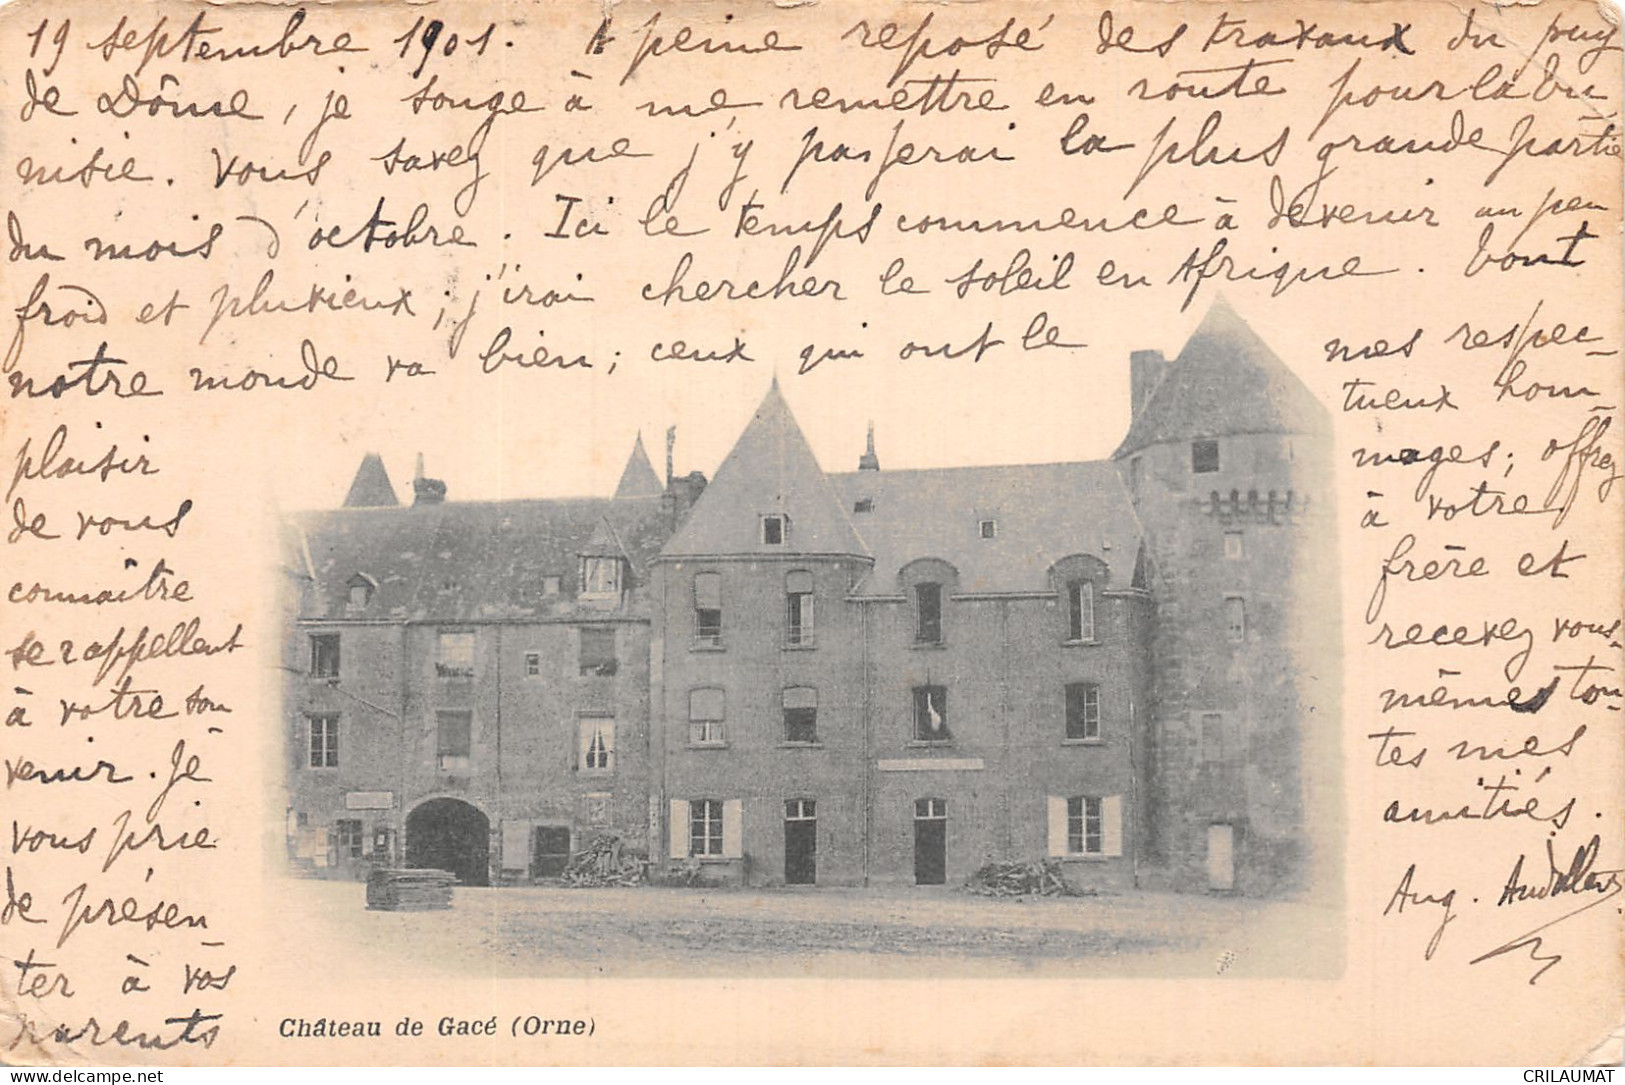 19 septembre 1901. A peine reposé des travaux du puy
de Dôme, je songe à me remettre en route pour la Tu
nisie. Vous savez que j'y passerai la plus grande partie
du mois d'octobre. Ici le temps commence à devenir un peu
froid et pluvieux ; j'irai chercher le soleil en Afrique. Tout
notre monde va bien ; ceux qui ont le
plaisir
de vous
connaître
se rappellent
à votre sou
venir. Je
vous prie
de présen-
ter à vos
parents
mes respec-
tueux hom-
mages ; offrez
à votre
frère et
recevez vous-
mêmes tou-
tes mes
amitiés.
Aug. Audollent
Château de Gacé (Orne)
delcampe.net
CRILAUMAT